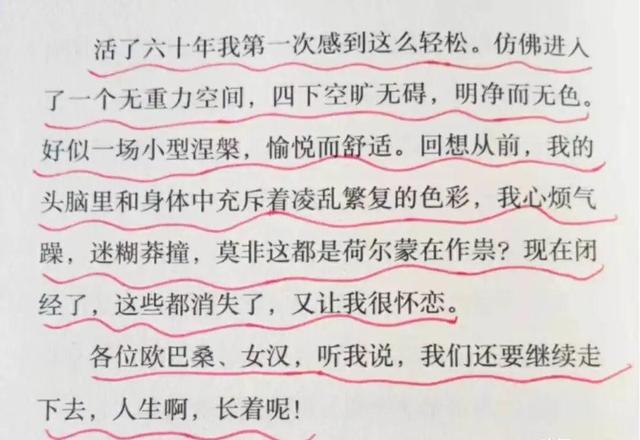 活了六十年我第一次感到这么轻松。仿佛进入
了一个无重力空间，四下空旷无碍，明净而无色。
好似一场小型涅槃，愉悦而舒适。回想从前，我的
头脑里和身体中充斥着凌乱繁复的色彩，我心烦气
躁，迷糊莽撞，莫非这都是荷尔蒙在作祟？现在闭
经了，这些都消失了，又让我很怀恋。
各位欧巴桑、女汉，听我说，我们还要继续走
下去，人生啊，长着呢！